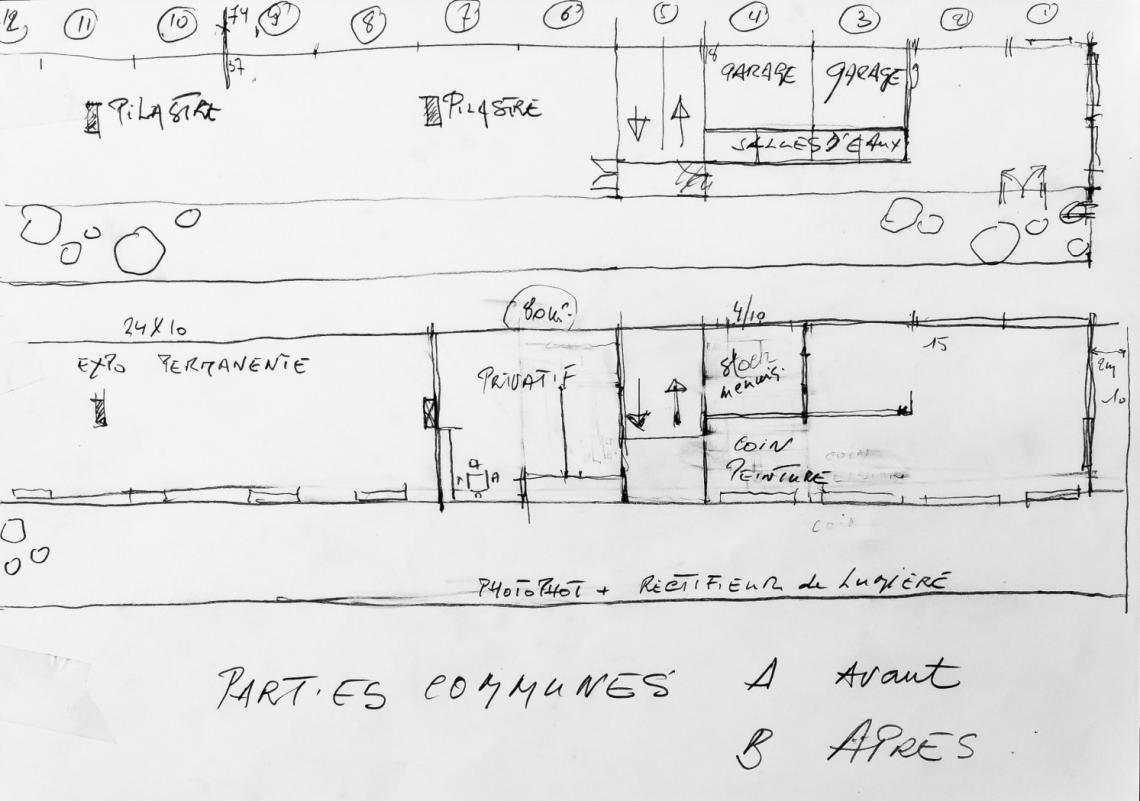 12 11 10 9 8 7 6 5 4 3 2 1
74
37
8
GARAGE GARAGE
PILASTRE PILASTRE
SALLES D'EAUX
24 X 10
80 m²
4/10
15
EXPO PERMANENTE
PRIVATIF
stock
menuis.
2m
10
COIN
PEINTURE
COIN
PHOTOPHOT + RECTIFIEUR de LUMIÈRE
PARTIES COMMUNES A Avant
B APRES